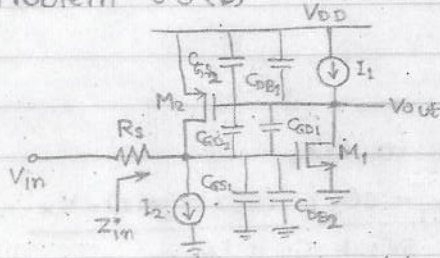 Problem
VDD
CGS2
CDB1
I1
M2
Vout
RS
CGD2
CGD1
M1
Vin
Zin
I2
CGS1
CDB2